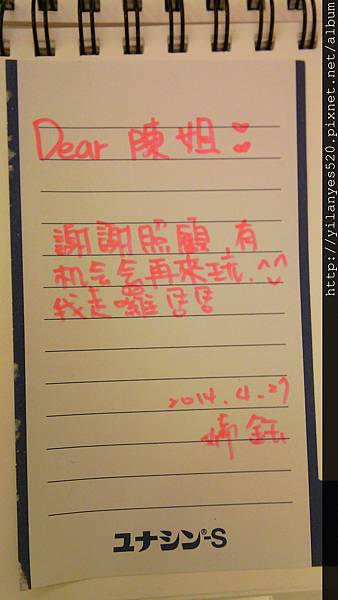 Dear 陳姐
謝謝照顧,有
机会会再來玩.^^
我走囉 掰掰
2014.4.27
ユナシン®-S
http://yilanyes520.pixnet.net/album